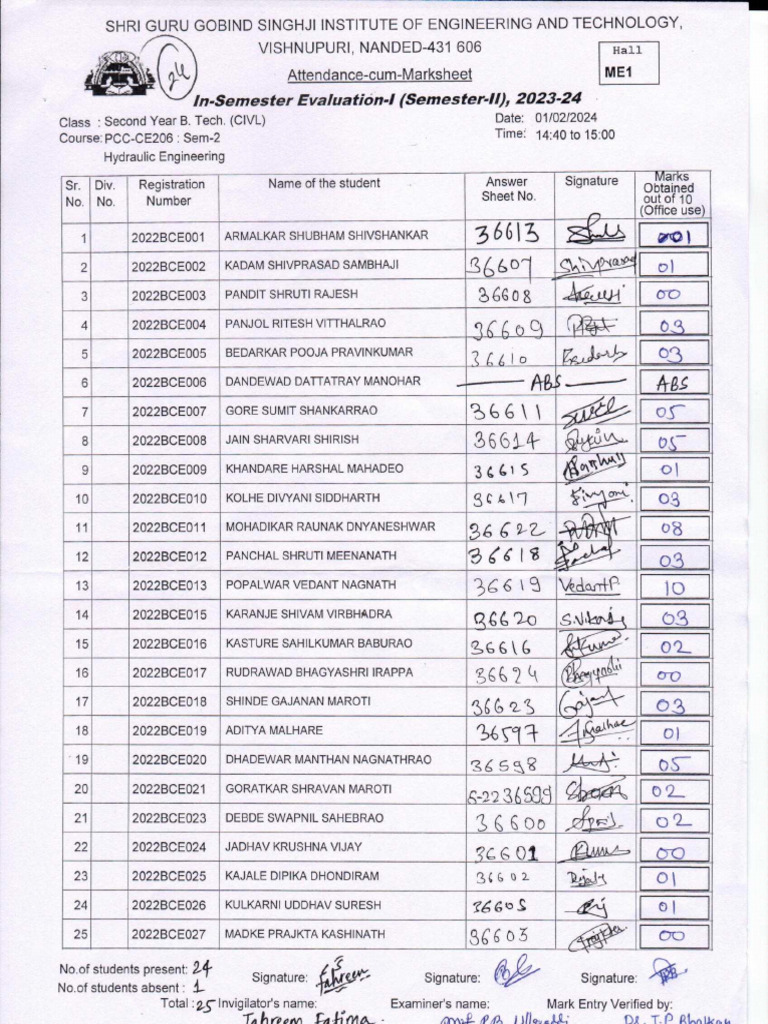 SHRI GURU GOBIND SINGHJI INSTITUTE OF ENGINEERING AND TECHNOLOGY,
VISHNUPURI, NANDED-431 606
Hall
ME1
24
Attendance-cum-Marksheet
In-Semester Evaluation-I (Semester-II), 2023-24
Class : Second Year B. Tech. (CIVL) Date: 01/02/2024
Course: PCC-CE206 : Sem-2 Time: 14:40 to 15:00
Hydraulic Engineering
Sr. No. Div. No. Registration Number Name of the student Answer Sheet No. Signature Marks Obtained out of 10 (Office use)
1 2022BCE001 ARMALKAR SHUBHAM SHIVSHANKAR 36613 01
2 2022BCE002 KADAM SHIVPRASAD SAMBHAJI 36607 Shivprasad 01
3 2022BCE003 PANDIT SHRUTI RAJESH 36608 00
4 2022BCE004 PANJOL RITESH VITTHALRAO 36609 03
5 2022BCE005 BEDARKAR POOJA PRAVINKUMAR 36610 03
6 2022BCE006 DANDEWAD DATTATRAY MANOHAR ABS ABS
7 2022BCE007 GORE SUMIT SHANKARRAO 36611 05
8 2022BCE008 JAIN SHARVARI SHIRISH 36614 05
9 2022BCE009 KHANDARE HARSHAL MAHADEO 36615 01
10 2022BCE010 KOLHE DIVYANI SIDDHARTH 36617 03
11 2022BCE011 MOHADIKAR RAUNAK DNYANESHWAR 36622 08
12 2022BCE012 PANCHAL SHRUTI MEENANATH 36618 03
13 2022BCE013 POPALWAR VEDANT NAGNATH 36619 VedantP. 10
14 2022BCE015 KARANJE SHIVAM VIRBHADRA 36620 03
15 2022BCE016 KASTURE SAHILKUMAR BABURAO 36616 02
16 2022BCE017 RUDRAWAD BHAGYASHRI IRAPPA 36624 00
17 2022BCE018 SHINDE GAJANAN MAROTI 36623 03
18 2022BCE019 ADITYA MALHARE 36597 01
19 2022BCE020 DHADEWAR MANTHAN NAGNATHRAO 36598 05
20 2022BCE021 GORATKAR SHRAVAN MAROTI S-2236599 02
21 2022BCE023 DEBDE SWAPNIL SAHEBRAO 36600 02
22 2022BCE024 JADHAV KRUSHNA VIJAY 36601 00
23 2022BCE025 KAJALE DIPIKA DHONDIRAM 36602 01
24 2022BCE026 KULKARNI UDDHAV SURESH 36605 01
25 2022BCE027 MADKE PRAJKTA KASHINATH 36603 00
No.of students present: 24 Signature: Tahreem Signature: Signature:
No.of students absent : 1
Total : 25 Invigilator's name: Examiner's name: Mark Entry Verified by:
Tahreem Fatima